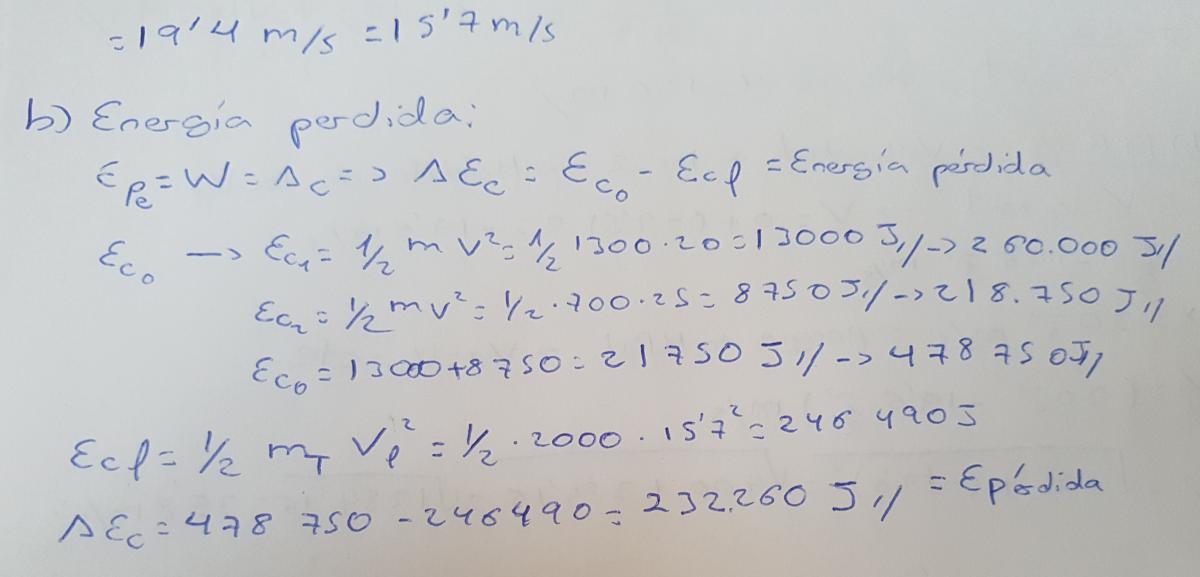 =19'4 m/s = 15'7 m/s
b) Energía perdida:
Epe = W = Δc => ΔEc = Ec0 - Ecf = Energía pérdida
Ec0 -> Ec1 = 1/2 m v² = 1/2 1300·20 = 13000 J// -> 260.000 J//
Ec2 = 1/2 m v² = 1/2·700·25 = 8750 J// -> 218.750 J//
Ec0 = 13000+8750 = 21750 J// -> 478 750 J//
Ecf = 1/2 mT Vf² = 1/2 · 2000 · 15'7² = 246 490 J
ΔEc = 478 750 - 246490 = 232.260 J// = Epérdida